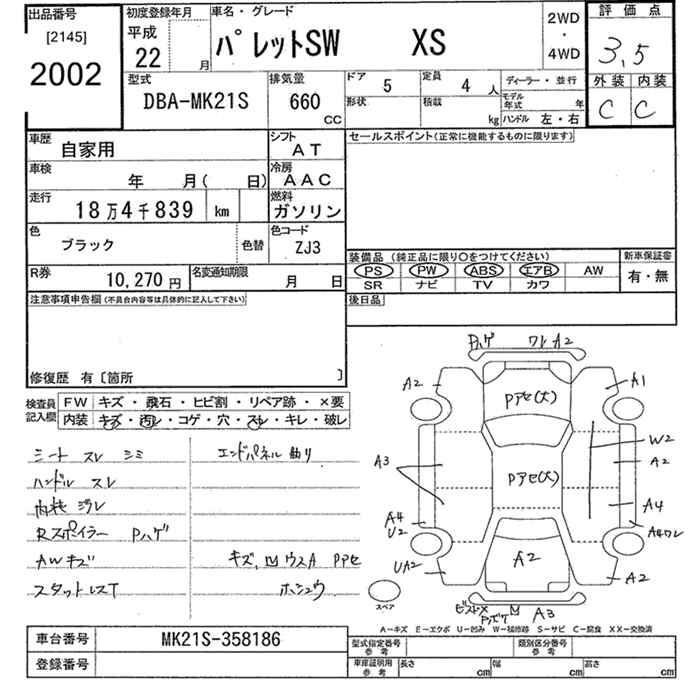 出品番号
[2145]
2002
初度登録年月
平成
22 月
車名・グレード
パレットSW XS
2WD
・
4WD
評価点
3,5
外装 内装
C C
型式
DBA-MK21S
排気量
660
CC
ドア 5
形状
定員 4 人
積載 kg
ディーラー・並行
モデル年式 年
ハンドル 左・右
車歴
自家用
シフト
AT
車検
年 月( 日)
冷房
AAC
走行
18万4千839 km
燃料
ガソリン
色
ブラック
色替
色コード
ZJ3
R券 10,270円
名変通知期限 月 日
セールスポイント(正常に機能するものに限ります)
装備品(純正品に限り○をつけてください)
PS PW ABS エアB AW
SR ナビ TV カワ
新車保証書
有・無
後日品
注意事項申告欄(不具合内容等は具体的に記入して下さい)
修復歴 有〔箇所 〕
検査員
記入欄
FW キズ・飛石・ヒビ割・リペア跡・×要
内装 キズ・汚レ・コゲ・穴・スレ・キレ・破レ
シート スレ シミ
ハンドル スレ
内装 汚レ
Rスポイラー Pハゲ
AWキズ
スタットレスT
エンドパネル 曲り
キズ, 凹 ウスA Pアセ
ホシュウ
Pハゲ ワレ A2
A2
A1
Pアセ(大)
W2
A2
A3
Pアセ(大)
A4
A4
U2
A4ワレ
UA2
A2
A2
スペア
ビストメ 凹 A3
Pハゲ
A－キズ E－エクボ U－凹み W－補修跡 S－サビ C－腐食 XX－交換済
車台番号 MK21S-358186
登録番号
型式指定番号
参考
類別区分番号
参考
車庫証明用
参考
長さ cm 幅 cm 高さ cm